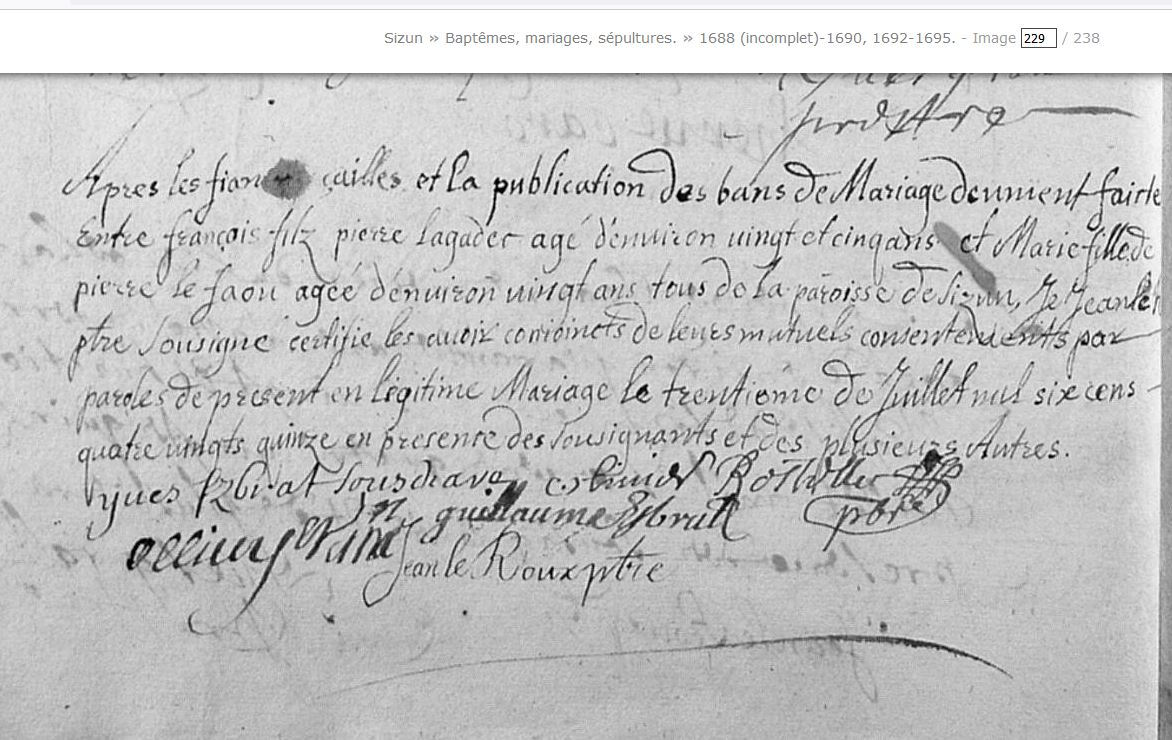 Sizun » Baptêmes, mariages, sépultures. » 1688 (incomplet)-1690, 1692-1695. - Image 229 / 238
Apres les fian çailles et la publication des bans de Mariage deuement faicte
Entre françois filz pierre Lagadec agé d'enuiron uingt et cinq ans et Marie fille de
pierre le faou ageé d'enuiron uingt ans tous de la paroisse de Sizun, Je Jean le
ptre Sousigne certifie les auoir conioincts de leurs mutuels consentements par
paroles de present en legitime Mariage le trentieme de Juillet mil six cens -
quatre uingts quinze en presence des Sousignants et des plusieurs Autres.
yues
guillaume
pbre
Jean le Roux ptre